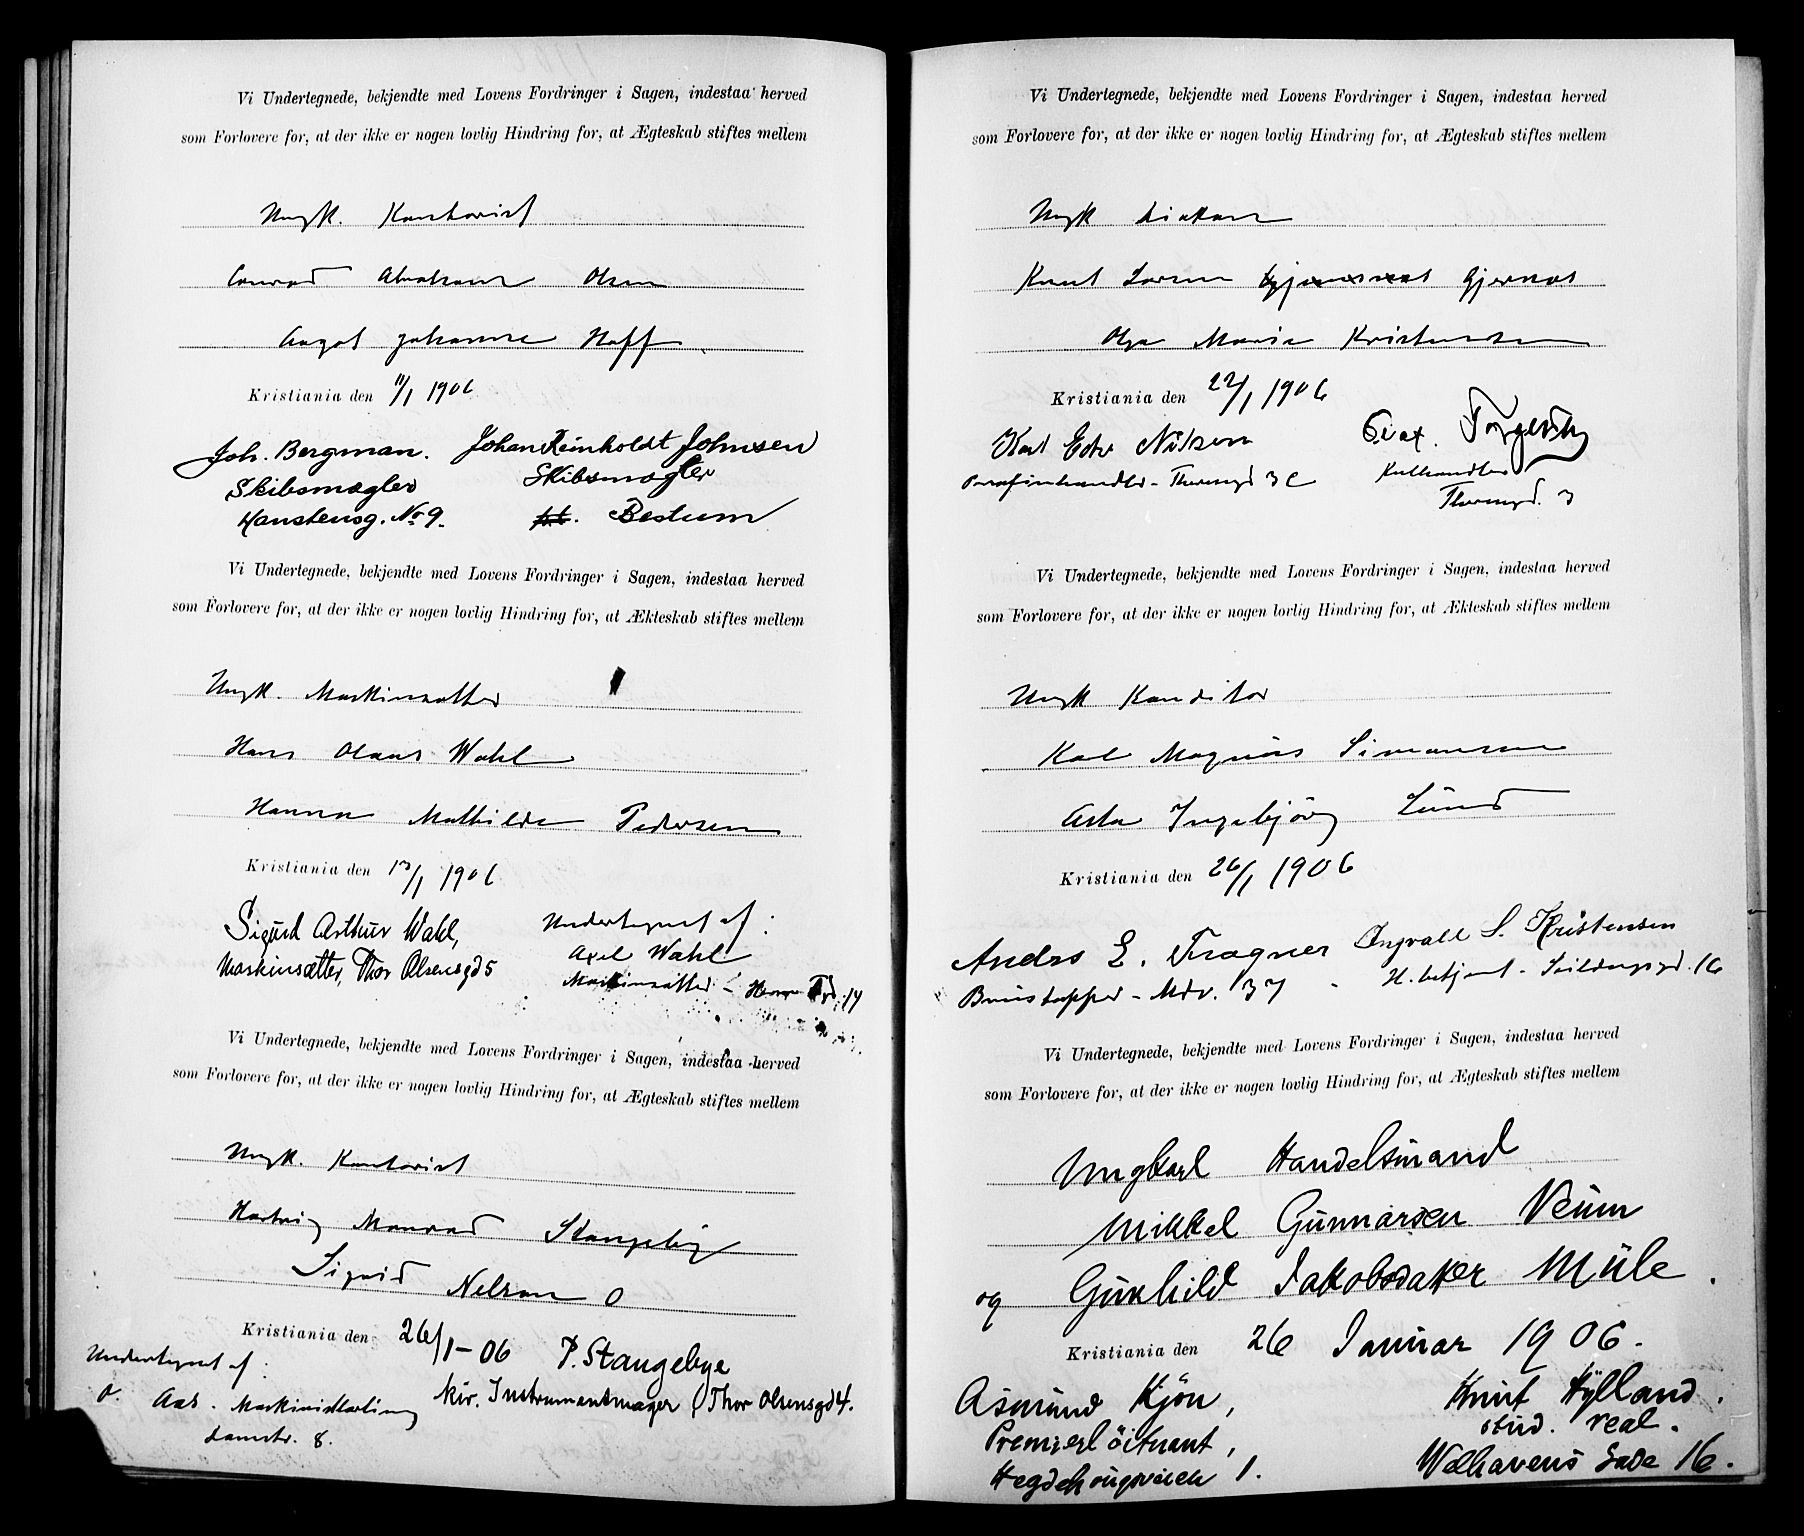 Vi Undertegnede, bekjendte med Lovens Fordringer i Sagen, indestaa herved
som Forlovere for, at der ikke er nogen lovlig Hindring for, at Ægteskab stiftes mellem
Ungk. Kontorist
Conrad Abraham Olsen
Aagot Johanne Hoff
Kristiania den 11/1 1906
Joh. Bergman. Johan Reinholdt Johnsen
Skibsmægler Skibsmægler
Hanstensg. No 9. Bestum
Vi Undertegnede, bekjendte med Lovens Fordringer i Sagen, indestaa herved
som Forlovere for, at der ikke er nogen lovlig Hindring for, at Ækteskab stiftes mellem
Ungk. Maskinsætter
Hans Olaus Wahl
Hanna Mathilde Pedersen
Kristiania den 13/1 1906
Sigurd Arthur Wahl, Undertegnet af:
Maskinsætter, Thor Olsensgd 5 Axel Wahl
Maskinsætter - 14
Vi Undertegnede, bekjendte med Lovens Fordringer i Sagen, indestaa herved
som Forlovere for, at der ikke er nogen lovlig Hindring for, at Ægteskab stiftes mellem
Ungk. Kontorist
Hartvig Monrad Stangeby
Sigrid Nelson
Kristiania den 26/1-06 P. Stangebye
Undertegnet af:
O. Aas. kir. Instrumentmager, Thor Olsensgd 4.
8.
Vi Undertegnede, bekjendte med Lovens Fordringer i Sagen, indestaa herved
som Forlovere for, at der ikke er nogen lovlig Hindring for, at Ægteskab stiftes mellem
Ungk
Knut Gjernes
Olga Marie Kristensen
Kristiania den 22/1 1906
Karl Nilsen
Parafinhandler - 3 c Kulhandler
3
Vi Undertegnede, bekjendte med Lovens Fordringer i Sagen, indestaa herved
som Forlovere for, at der ikke er nogen lovlig Hindring for, at Ækteskab stiftes mellem
Ungk Konditor
Karl Magnus Simonsen
Asta Ingebjörg Lund
Kristiania den 26/1 1906
Andrs E. Tragner Ingvald S. Kristensen
Brustapper - 37 - H. betjent - 16
Vi Undertegnede, bekjendte med Lovens Fordringer i Sagen, indestaa herved
som Forlovere for, at der ikke er nogen lovlig Hindring for, at Ægteskab stiftes mellem
Ungkarl Handelsmand
Mikkel Gunnarsen Veum
og Gunhild Jakobsdatter Mule.
Kristiania den 26 Januar 1906.
Asmund Kjön, Knut Hylland.
Premierlöitnant, stud. real.
Hegdehougsveien 1. Welhavens Gade 16.